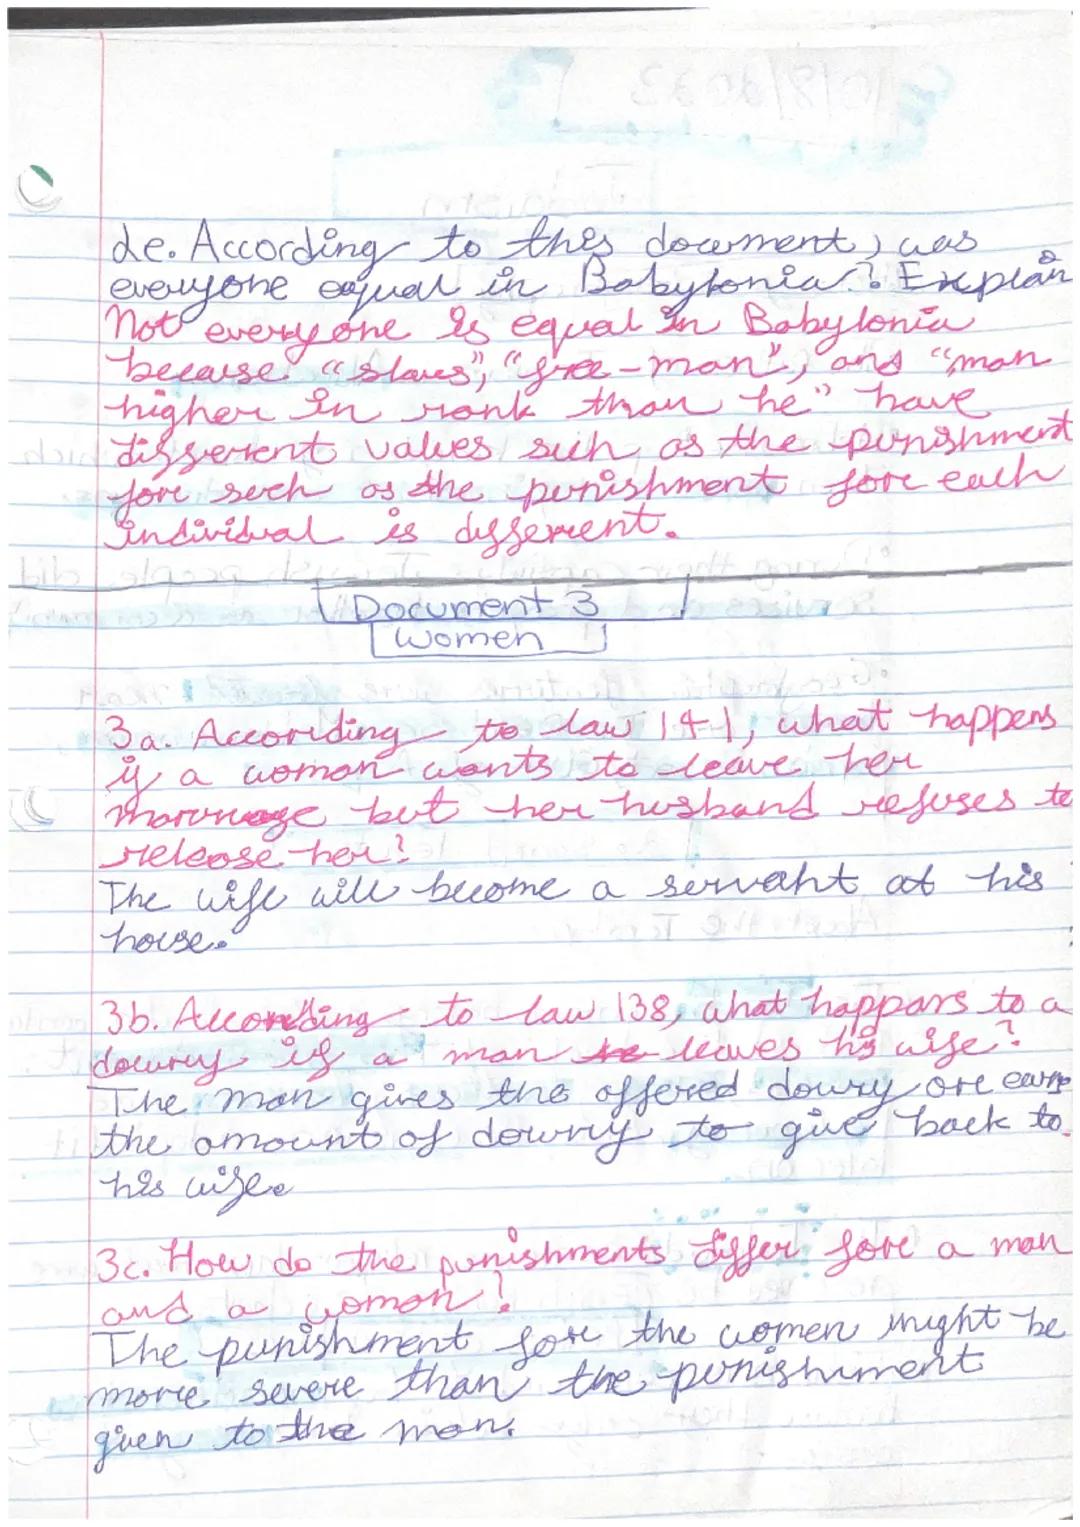 2e. According to this document, was
everyone equal in Babylonia? Explain
Not everyone is equal in Babylonia
because "slaves", "free-man", and "man
higher in rank than he" have
different values such as the punishment
for such as the punishment for each
individual is different.
Document 3
Women
3a. According to law 141, what happens
if a woman wants to leave her
marriage but her husband refuses to
release her?
The wife will become a servant at his
house.
3b. According to law 138, what happens to a
dowry if a man leaves his wife?
The man gives the offered dowry or earn
the amount of dowry to give back to
his wife.
3c. How do the punishments differ for a man
and a woman?
The punishment for the women might be
more severe than the punishment
given to the man.